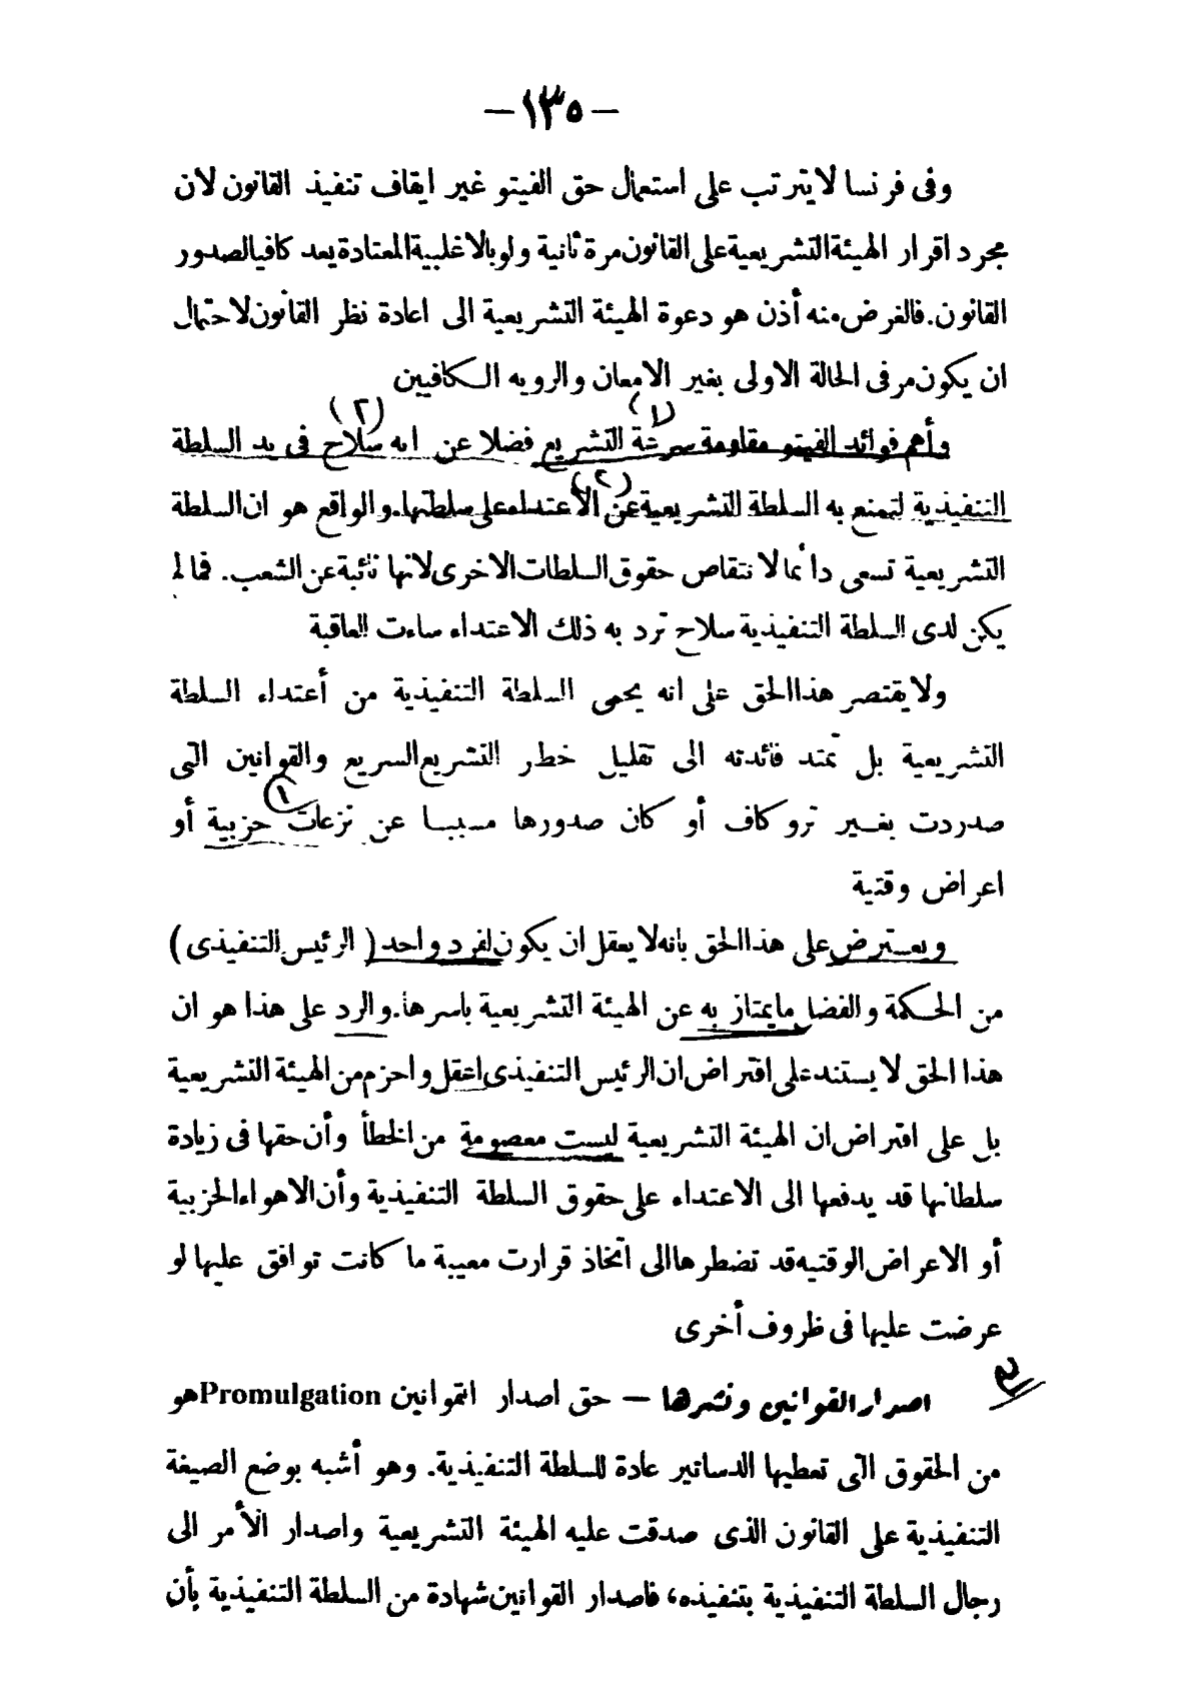 — ١٣٥ —
وفى فرنسا لا يترتب على استعمال حق الفيتو غير ايقاف تنفيذ القانون لان
مجرد اقرار الهيئة التشريعية على القانون مرة ثانية ولو بالاغلبية المعتادة يعد كافيا لصدور
القانون. فالغرض منه أذن هو دعوة الهيئة التشريعية الى اعادة نظر القانون لاحتمال
ان يكون مر فى الحالة الاولى بغير الامعان والرويه الكافيين
(١) (٢)
وأهم فوائد الفيتو مقاومة سرعة التشريع فضلا عن انه سلاح فى يد السلطة
(٢)
التنفيذية لتمنع به السلطة التشريعية عن الاعتداء على سلطتها. والواقع هو ان السلطة
التشريعية تسعى دائما لانتقاص حقوق السلطات الاخرى لانها نائبة عن الشعب. فما لم
يكن لدى السلطة التنفيذية سلاح ترد به ذلك الاعتداء ساءت العاقبة
ولا يقتصر هذا الحق على انه يحمى السلطة التنفيذية من أعتداء السلطة
التشريعية بل تمتد فائدته الى تقليل خطر التشريع السريع والقوانين التى
١
صدردت بغير ترو كاف أو كان صدورها مسببا عن نزعات حزبية أو
اعراض وقتية
ويعترض على هذا الحق بانه لا يعقل ان يكون لفرد واحد (الرئيس التنفيذى)
من الحكمة والفضل ما يمتاز به عن الهيئة التشريعية باسرها. والرد على هذا هو ان
هذا الحق لا يستند على افتراض ان الرئيس التنفيذى اعقل واحزم من الهيئة التشريعية
بل على افتراض ان الهيئة التشريعية ليست معصومة من الخطأ وأن حقها فى زيادة
سلطانها قد يدفعها الى الاعتداء على حقوق السلطة التنفيذية وأن الاهواء الحزبية
أو الاعراض الوقتيه قد تضطرها الى اتخاذ قرارت معيبة ما كانت توافق عليها لو
عرضت عليها فى ظروف أخرى
اصدار القوانين ونشرها — حق اصدار القوانين Promulgation هو
من الحقوق التى تعطيها الدساتير عادة للسلطة التنفيذية. وهو أشبه بوضع الصيغة
التنفيذية على القانون الذى صدقت عليه الهيئة التشريعية واصدار الأمر الى
رجال السلطة التنفيذية بتنفيذه، فاصدار القوانين شهادة من السلطة التنفيذية بأن